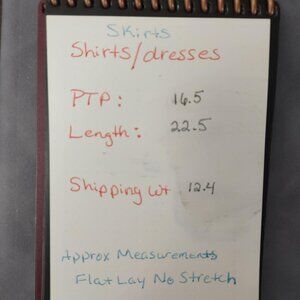 Skirts
Shirts/dresses
PTP: 16.5
Length: 22.5
Shipping wt 12.4
Approx Measurements
Flat Lay No Stretch